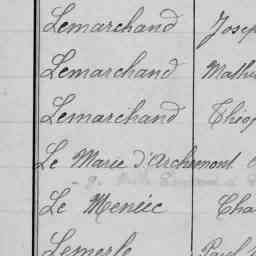 Lemarchand Josep
Lemarchand Mathu
Lemarchand Théop
Le Marie d'Archemont
Le Menéec Cha
Lemerle Paul